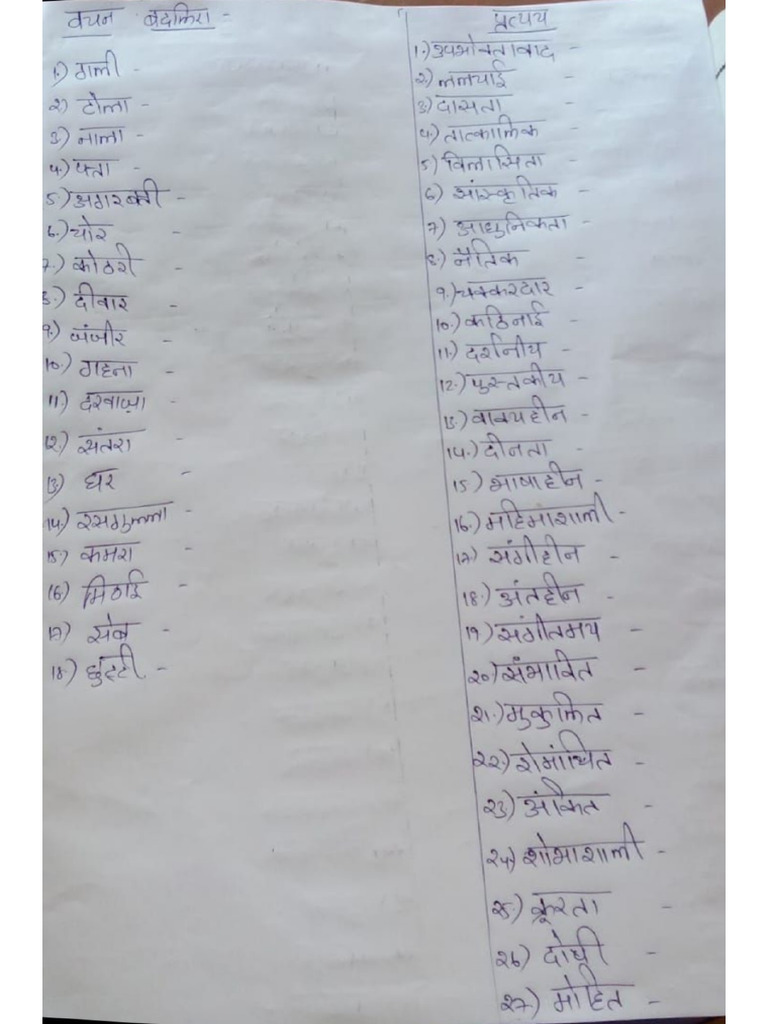 वचन बदलिए -
1.) गली -
2) टोला -
3) नाला -
4) पत्ता -
5.) अगरबत्ती -
6.) चोर -
7.) कोठरी -
8.) दीवार -
9.) जंजीर -
10.) गहना -
11) दरवाज़ा -
12.) संतरा -
13) घर -
14.) रसगुल्ला -
15.) कमरा -
16) मिठाई -
17) सेब -
18.) छुट्टी. -
प्रत्यय
1.) उपभोक्तावाद -
2) ललचाई -
3) दासता -
4.) तात्कालिक -
5) विलासिता -
6) सांस्कृतिक -
7) आधुनिकता -
8) नैतिक -
9.) चक्करदार -
10.) कठिनाई -
11.) दर्शनीय -
12.) पुस्तकीय -
13.) वाक्यहीन -
14.) दीनता -
15) भाषाहीन -
16.) महिमाशाली -
17) संगीहीन -
18.) अंतहीन -
19) संगीतमय -
20) संभावित -
21.) मुकुलित -
22.) रोमांचित -
23) अंकित -
24) शोभाशाली -
25.) क्रूरता -
26) दोषी -
27) मोहित -